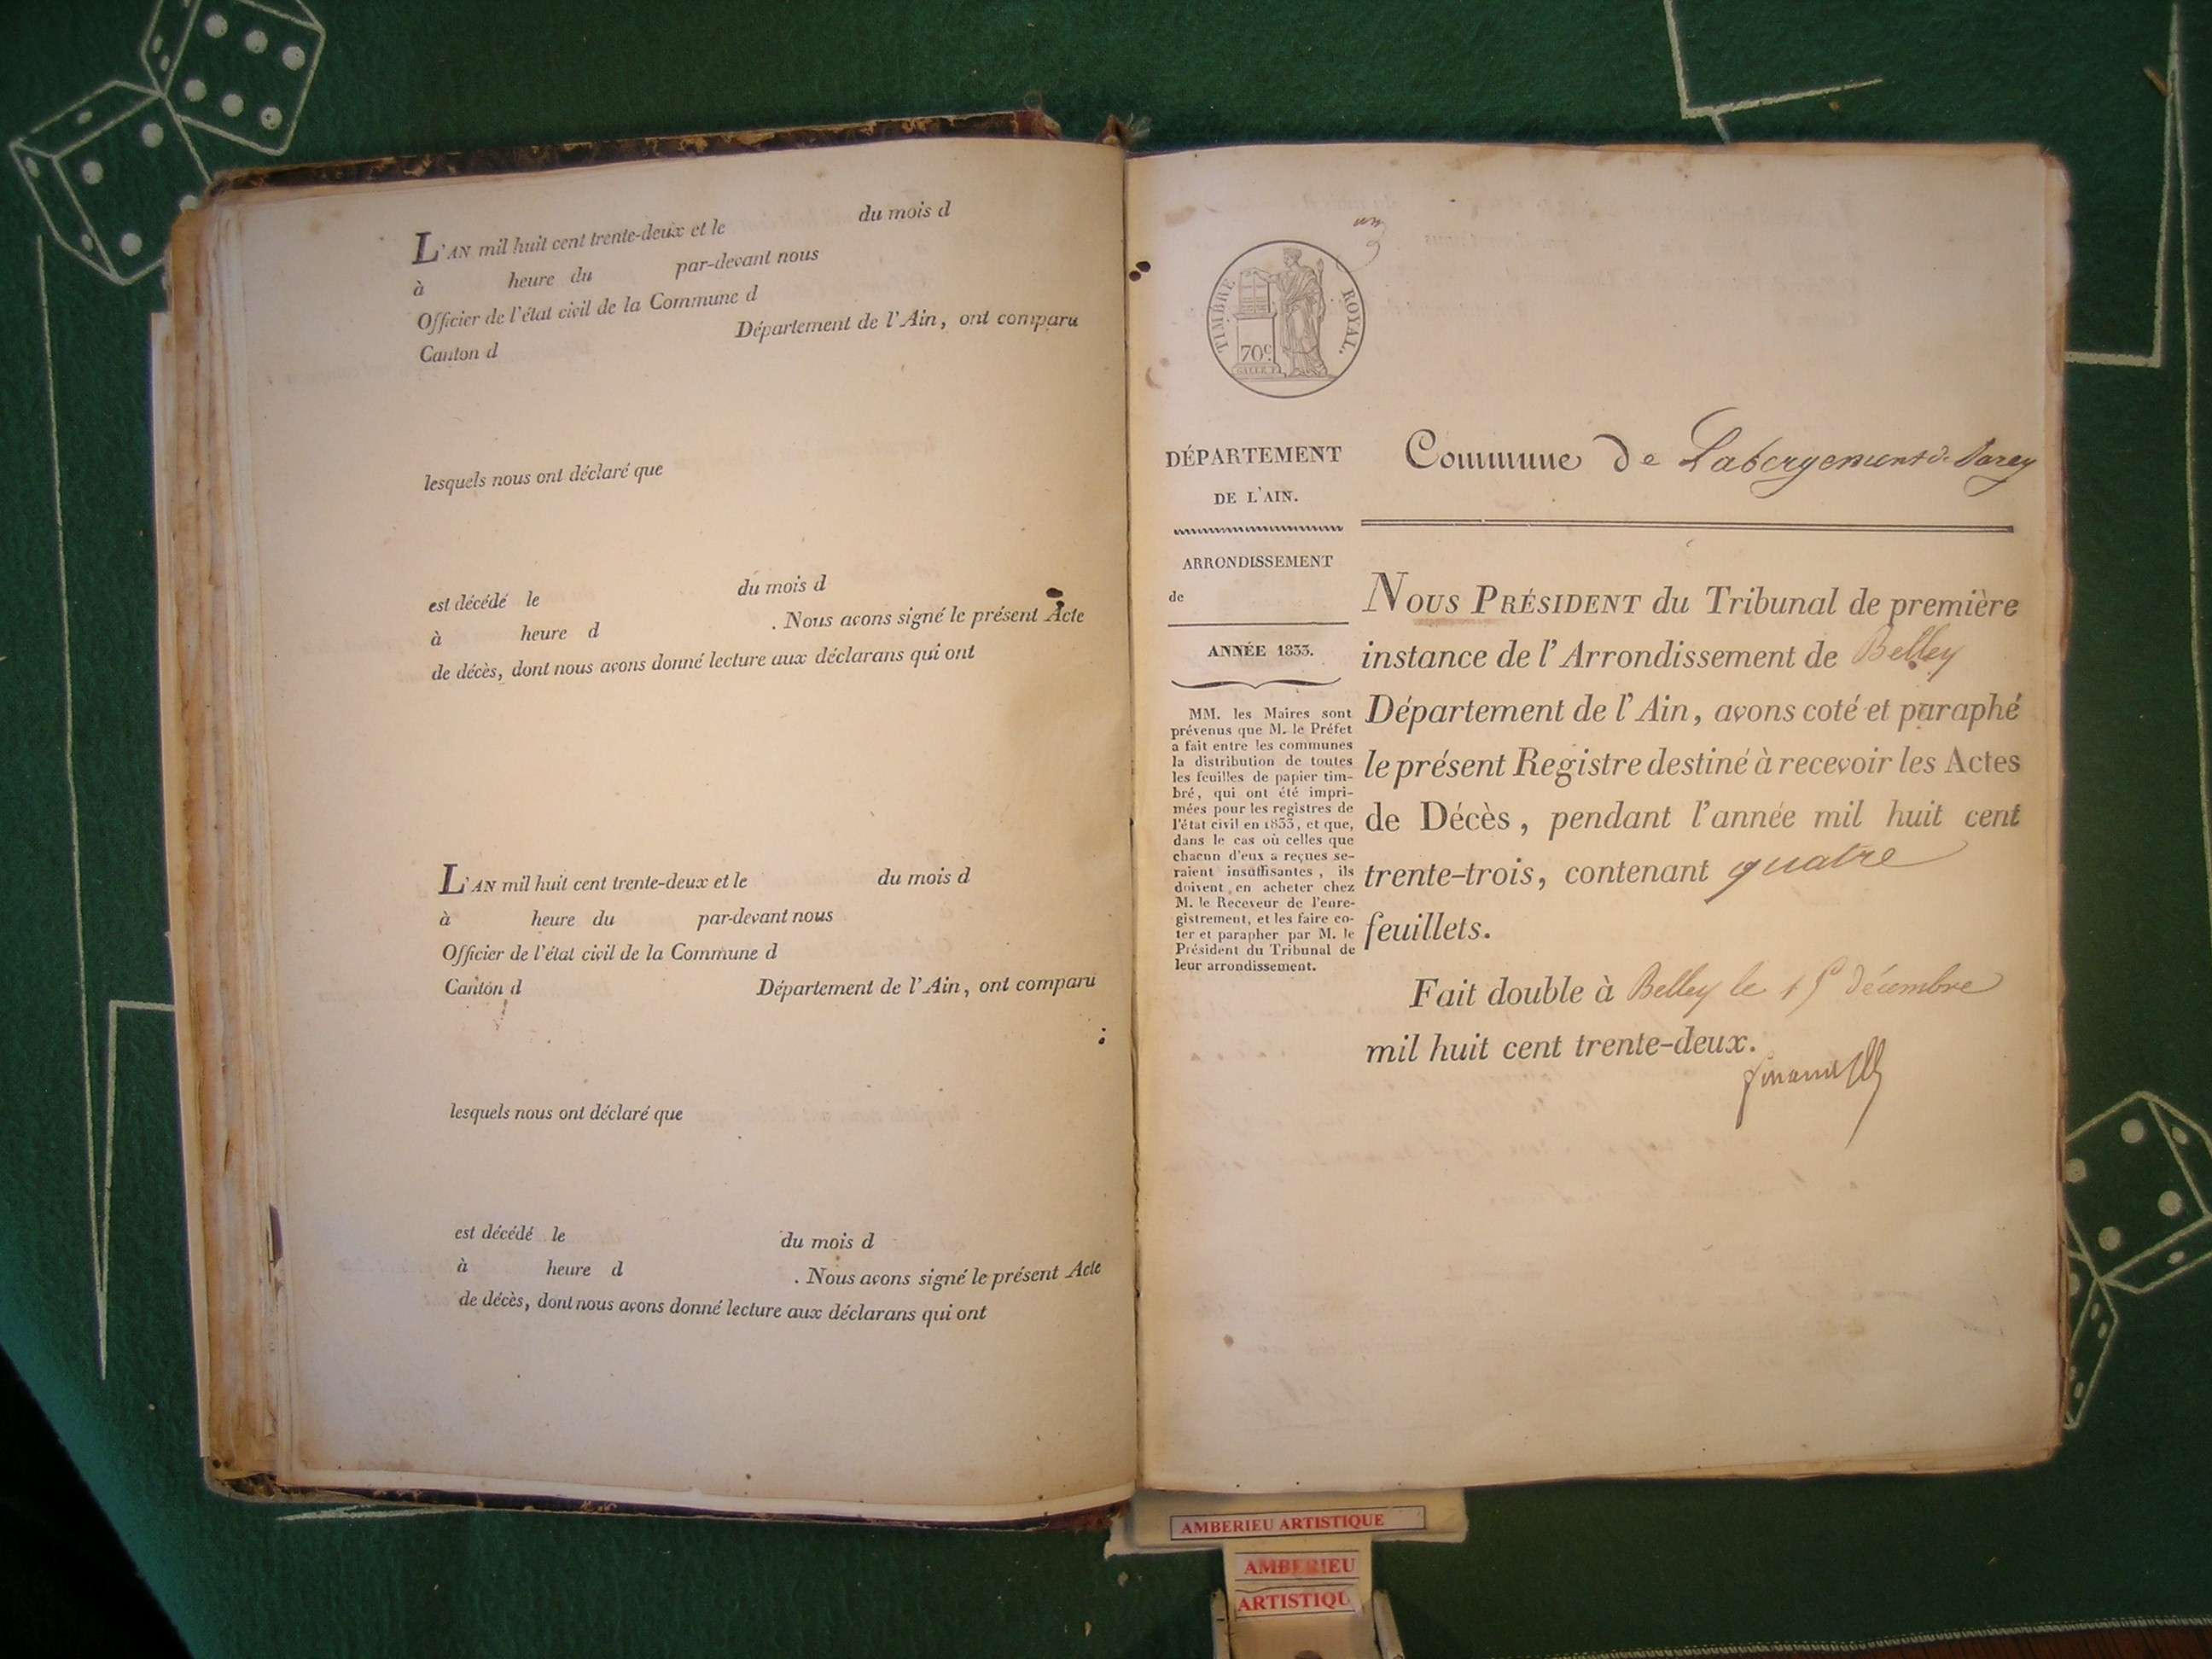 L'AN mil huit cent trente-deux et le du mois d
à heure du par-devant nous
Officier de l'état civil de la Commune d
Canton d Département de l'Ain, ont comparu
lesquels nous ont déclaré que
est décédé le du mois d
à heure d . Nous avons signé le présent Acte
de décès, dont nous avons donné lecture aux déclarans qui ont
L'AN mil huit cent trente-deux et le du mois d
à heure du par-devant nous
Officier de l'état civil de la Commune d
Canton d Département de l'Ain, ont comparu
lesquels nous ont déclaré que
est décédé le du mois d
à heure d . Nous avons signé le présent Acte
de décès, dont nous avons donné lecture aux déclarans qui ont
un
TIMBRE ROYAL.
70c.
DÉPARTEMENT
DE L'AIN.
ARRONDISSEMENT
de
ANNÉE 1833.
MM. les Maires sont
prévenus que M. le Préfet
a fait entre les communes
la distribution de toutes
les feuilles de papier tim-
bré, qui ont été impri-
mées pour les registres de
l'état civil en 1833, et que,
dans le cas où celles que
chacun d'eux a reçues se-
raient insuffisantes, ils
doivent en acheter chez
M. le Receveur de l'enre-
gistrement, et les faire co-
ter et parapher par M. le
Président du Tribunal de
leur arrondissement.
Commune de Labergement de Varey
NOUS PRÉSIDENT du Tribunal de première
instance de l'Arrondissement de Belley
Département de l'Ain, avons coté et paraphé
le présent Registre destiné à recevoir les Actes
de Décès, pendant l'année mil huit cent
trente-trois, contenant quatre
feuillets.
Fait double à Belley le 15 décembre
mil huit cent trente-deux.
AMBERIEU ARTISTIQUE
AMBERIEU
ARTISTIQU